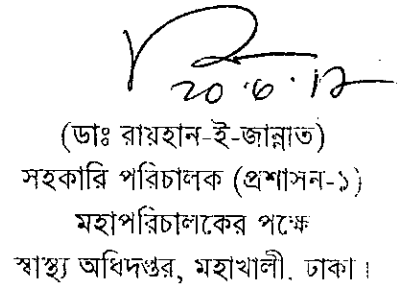 20.6.12
(ডাঃ রায়হান-ই-জান্নাত)
সহকারি পরিচালক (প্রশাসন-১)
মহাপরিচালকের পক্ষে
স্বাস্থ্য অধিদপ্তর, মহাখালী. ঢাকা।